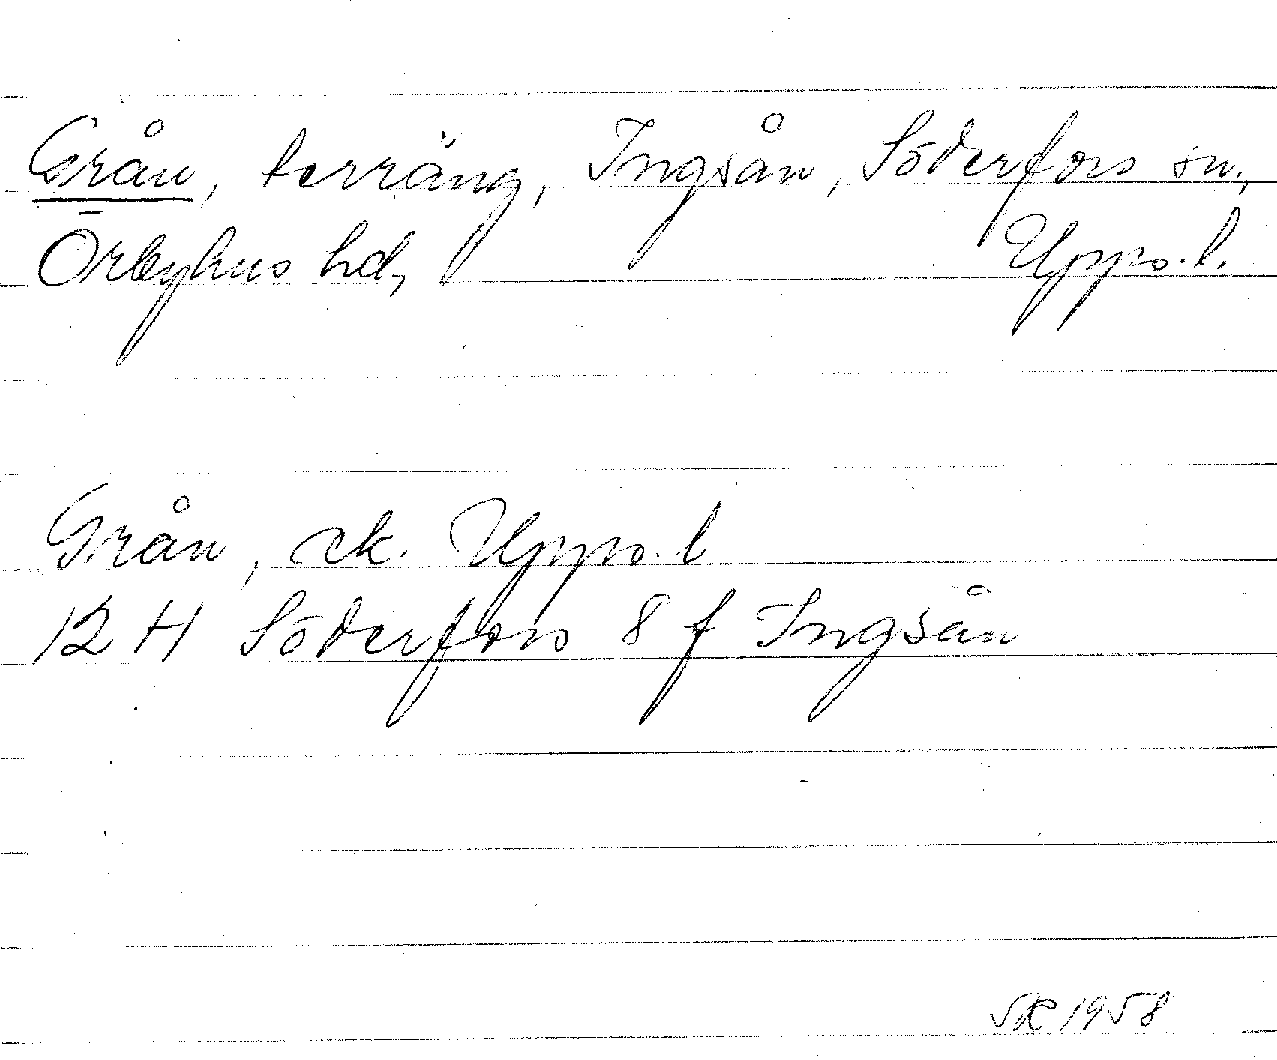 Grån, terräng, Ingsån, Söderfors sn.,
Örbyhus hd, Upps. l.
Grån, ek. Upps. l
12 H Söderfors 8 f Ingsån
SR 1958